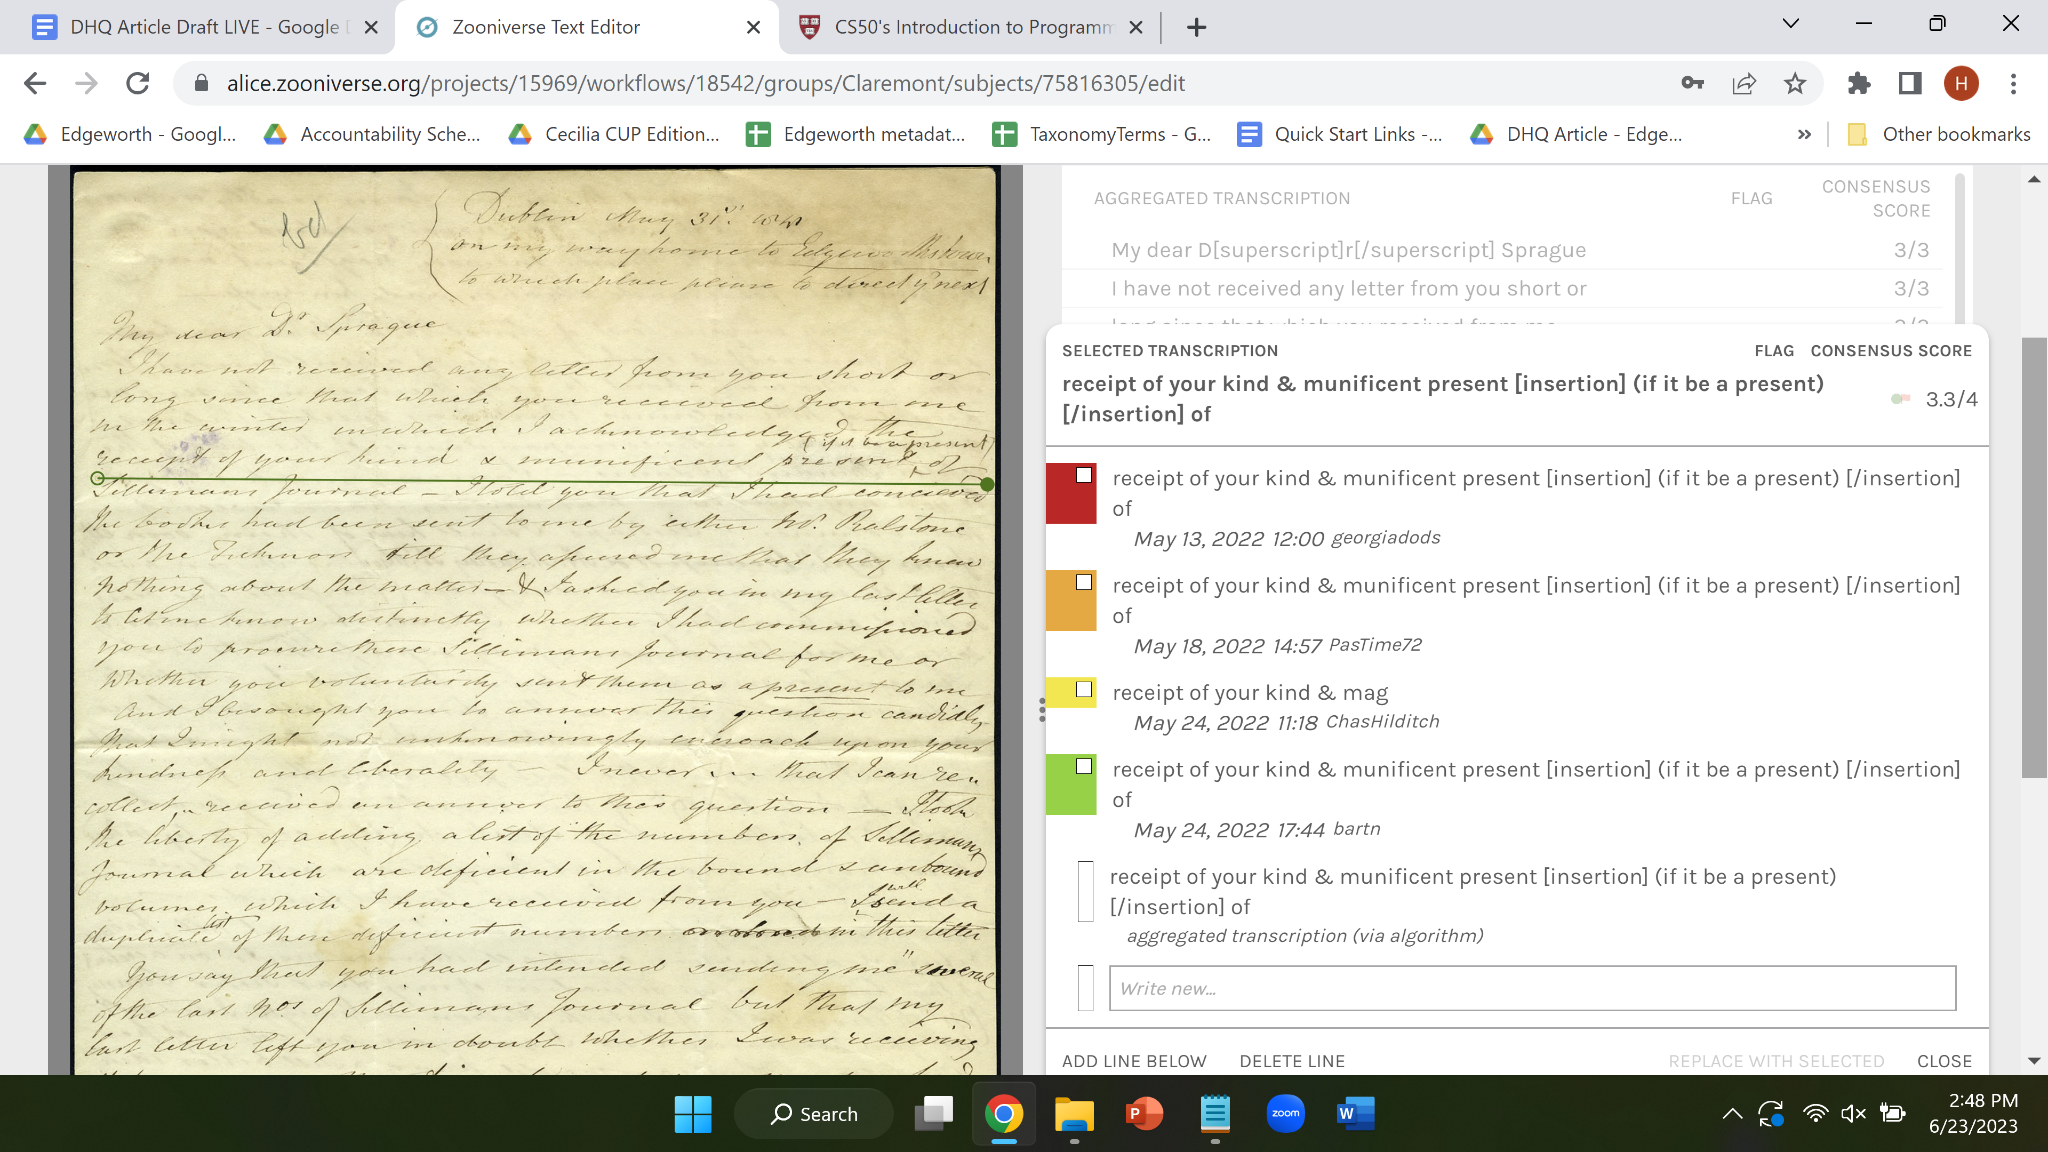 DHQ Article Draft LIVE - Google D
Zooniverse Text Editor
CS50's Introduction to Programm
alice.zooniverse.org/projects/15969/workflows/18542/groups/Claremont/subjects/75816305/edit
H
Edgeworth - Googl...
Accountability Sche...
Cecilia CUP Edition...
Edgeworth metadat...
TaxonomyTerms - G...
Quick Start Links -...
DHQ Article - Edge...
»
Other bookmarks
Dublin May 31st. 
on my way home to Edgeworthstown
to which place please to direct yr next
My dear Dr Sprague
I have not received any letter from you short or
long since that which you received from me
in the winter in which I acknowledged the
(if it be a present)
receipt of your kind & munificent present of
Sillimans Journal – I told you that I had conceived
the books had been sent to me by either Mr. Ralstone
or the Ticknors till they assured me that they knew
nothing about the matter – & I asked you in my last letter
to let me know distinctly whether I had commissioned
you to procure these Sillimans Journal for me or
whether you voluntarily sent them as a present to me
And I besought you to answer this question candidly
that I might not unknowingly encroach upon your
kindness and liberality – I never that I can re
collect received an answer to this question – I took
the liberty of adding a list of the numbers of Sillimans
Journal which are deficient in the bound & unbound
will
volumes which I have received from you – I send a
list
duplicate of these deficient numbers in this letter
You say that you had intended sending me "several
of the last Nos of Sillimans Journal but that my
last letter left you in doubt whether I was receiving
AGGREGATED TRANSCRIPTION
FLAG
CONSENSUS
SCORE
My dear D[superscript]r[/superscript] Sprague
3/3
I have not received any letter from you short or
3/3
long since that which you received from me
SELECTED TRANSCRIPTION
FLAG
CONSENSUS SCORE
receipt of your kind & munificent present [insertion] (if it be a present)
[/insertion] of
3.3/4
receipt of your kind & munificent present [insertion] (if it be a present) [/insertion]
of
May 13, 2022 12:00 georgiadods
receipt of your kind & munificent present [insertion] (if it be a present) [/insertion]
of
May 18, 2022 14:57 PasTime72
receipt of your kind & mag
May 24, 2022 11:18 ChasHilditch
receipt of your kind & munificent present [insertion] (if it be a present) [/insertion]
of
May 24, 2022 17:44 bartn
receipt of your kind & munificent present [insertion] (if it be a present)
[/insertion] of
aggregated transcription (via algorithm)
Write new...
ADD LINE BELOW
DELETE LINE
REPLACE WITH SELECTED
CLOSE
Search
P
zoom
W
2:48 PM
6/23/2023